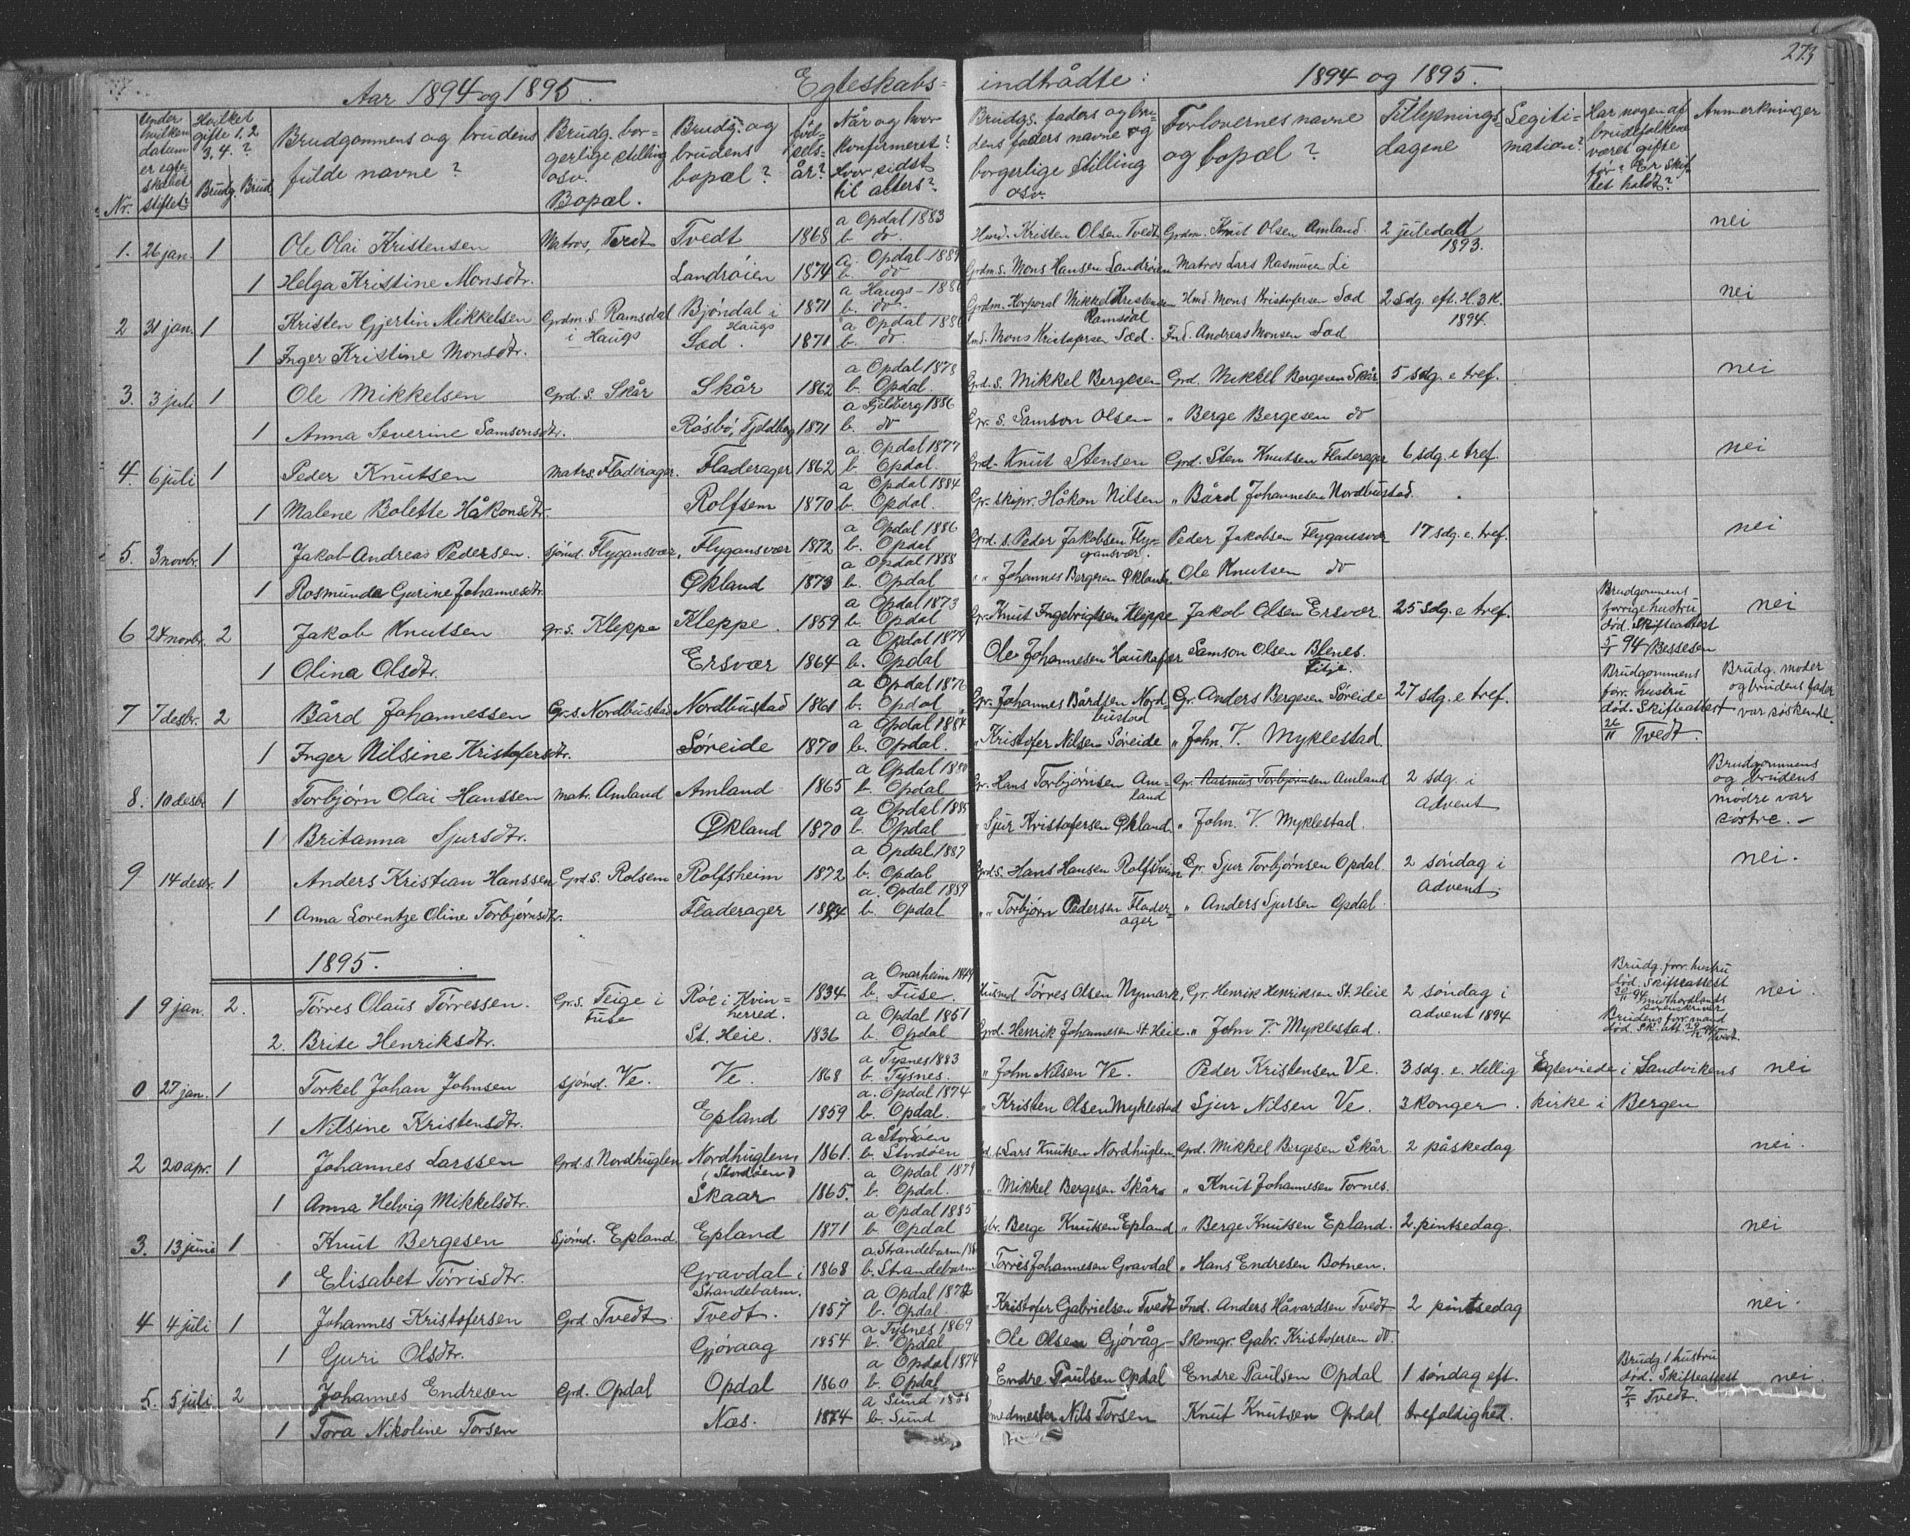 273
Aar 1894 og 1895. Egteskabs= indtrådte: 1894 og 1895.
Nr. Under hvilken datum er egteskabet stiftet? Hvilket gifte 1. 2. 3. 4.? Brudg. Brud. Brudgommens og brudens fulde navne? Brudg. borgerlige stilling osv. Bopæl. Brudg. og brudens bopæl? Fødselsår? Når og hvor konfirmeret? Hvor sidst til alters? Brudgs. faders og brudens faders navne og borgerlige stilling osv. Forlovernes navne og bopæl? Tillysningsdagene Legitimation? Har nogen af brudefolkene været gifte før? Er skiftet holdt? Anmerkninger
1. 26 jan. 1 Ole Olai Kristensen Matros, Tvedt Tvedt 1868 a Opdal 1883 b. do. Husd. Kristen Olsen Tvedt Grdm. Knut Olsen Amland 2 juledad 1893. nei
1 Helga Kristine Monsdtr. Landrøien 1874 a. Opdal 1889 b do Grdm. S. Mons Hansen Landrøien Matros Lars Rasmusen Li
2 31 jan. 1 Kristen Gjertin Mikkelsen Grdm. S. Ramsdal i Haugs Bjøndal i Haugs 1871 a Haugs 1886 b. do Grdm. Korporal Mikkel Kristensen Ramsdal Husd. Mons Kristofersen Sæd 2 Sdg. eft. H. 3 K. 1894. nei
1 Inger Kristine Monsdtr. Sæd. 1871 a Opdal 1886 b. do Mons Kristofersen Sæd. Ind. Andreas Monsen Sæd
3. 3 juli 1 Ole Mikkelsen Grd. S. Skår Skår 1862 a Opdal 1878 b. Opdal. Grd. S. Mikkel Bergesen Grd. Mikkel Bergesen Skår 5 sdg. e tref. nei
1 Anna Severine Samsonsdtr. Røsbø, Fjeldberg 1871 a Fjelberg 1886 b. do Gr. S. Samson Olsen „ Berge Bergesen do
4. 6 juli 1 Peder Knutsen Matrs. Fladerager. Fladerager 1862 a. Opdal 1877 b. Opdal. Grd. Knut Stensen Grd. Sten Knutsen Fladerager 6 sdg. e tref. nei
1 Malene Bolette Håkonsdtr. Rolfsem 1870 a Opdal 1884 b. Opdal. Gr. skipr. Håkon Nilsen „ Bård Johannesen Nordbustad.
5. 3 novbr. 1 Jakob Andreas Pedersen. Sjømd. Flygansvær, Flygansvær 1872 a Opdal 1886 b. Opdal Grd. S. Peder Jakobsen Flygansvær. Peder Jakobsen Flygansvær 17 sdg. e. tref. nei
1 Rosmunda Gurine Johannesdtr. Økland 1873 a Opdal 1888 b. Opdal „ Johannes Bergesen Økland Ole Knutsen do
6 24 novbr. 2 Jakob Knutsen gr. s. Kleppe Kleppe. 1859 a Opdal 1873 b. Opdal Gr. Knut Ingebrigtsen Kleppe Jakob Olsen Ersvær. 25 sdg. e tref. Brudgommens forrige hustru død. Skifteattest 5/5 94 Bessesen nei
1 Olina Olsdtr. Ersvær 1864 a Opdal 1879 b. Opdal Ole Johannesen Haukafær Samson Olsen Blenes. Fitje.
7 7 desbr. 2 Bård Johannessen Gr. s. Nordbustad Nordbustad 1861 a Opdal 1876 b. Opdal Gr. Johannes Bårdsen Nordbustad Gr. Anders Bergesen Søreide 27 sdg. e tref. Brudgommens for. hustru død. Skifteattest 26/11 Tvedt. Brudg. moder og brudens fader var søskende.
1 Inger Nilsine Kristofersdtr. Søreide 1870 a Opdal 1884 b. Opdal. „ Kristofer Nilsen Søreide „ John. V. Myklestad.
8. 10 desbr 1 Torbjørn Olai Hanssen matr. Amland Amland 1865 a Opdal 1880 b. Opdal Gr. Hans Torbjørnsen Amland Gr. Rasmus Torbjørnsen Amland 2 sdg. i advent Brudgommens og brudens mødre var søstre.
1 Britanna Sjursdtr. Økland 1870 a Opdal 1885 b. Opdal „ Sjur Kristofersen Økland. „ John. V. Myklestad.
9 14 desbr. 1 Anders Kristian Hanssen Grd. S. Rolsem Rolfsheim 1872 a Opdal 1887 b. Opdal Grd. S. Hans Hansen Rolfsheim Gr. Sjur Torbjørnsen Opdal 2 søndag i advent. nei.
1 Anna Lorentze Oline Torbjørnsdtr. Fladerager 1874 a. Opdal 1889 b. Opdal „ Torbjørn Pedersen Fladerager „ Anders Sjursen Opdal.
1895.
1 9 jan. 2. Tørres Olaus Tørressen. Gr. S. Teige i Fuse Røe i Kvinherred. 1834 a Onarheim 1849 b. Fuse. Husmd Tørres Olsen Nymark, Gr. Henrik Henriksen St. Heie 2 søndag i advent 1894 Brudg. forr. hustru død. Skifteattest 30/11 94 Midthordlands Sorenskriver Brudens forr. mand død. Sk. att. Tvedt. nei.
2. Brite Henriksdtr. St. Heie. 1836 a Opdal 1851 b. Opdal Grd. Henrik Johannesen St. Heie „ John V. Myklestad.
0 27 jan. 1 Torkel Johan Johnsen sjømd. Ve. Ve. 1868 a Tysnes 1883 b. Tysnes. „ John Nilsen Ve. Peder Kristensen Ve. 3 sdg. e. Hellig 3 konger. Egteviede i Sandvikens kirke i Bergen nei
1 Nilsine Kristensdtr. Epland 1859 a. Opdal 1874 b. Opdal. „ Kristen Olsen Myklestad Sjur Nilsen Ve.
2 20 apr. 1 Johannes Larssen Grd. s. Nordhuglen Nordhuglen, (Stordøen) 1861. a Stordøen b. Stordøen Lars Knutsen Nordhuglen Grd. Mikkel Bergesen Skår. 2 påskedag nei.
1 Anna Helvig Mikkelsdtr. Skaar 1865. a Opdal 1879 b. Opdal. „ Mikkel Bergesen Skår. „ Knut Johannesen Tornes.
3. 13 juni 1 Knut Bergesen Sjømd. Epland. Epland 1871 a Opdal 1885 b Opdal Berge Knutsen Epland „ Berge Knutsen Epland. 2. pintsedag. nei
1 Elisabet Tørrisdtr. Gravdal i Strandebarm. 1868 a. Strandebarm b. Strandebarm „ Torres Johannesen Gravdal „ Hans Endresen Botnen.
4 4 juli 1 Johannes Kristofersen Grd. Tvedt. Tvedt. 1857 a Opdal b. Opdal „ Kristofer Gabrielsen Tvedt Ind. Anders Håvardsen Tvedt 2 pintsedag nei.
1 Guri Olsdtr. Gjøvaag 1854 a Tysnes 1869 b. Opdal „ Ole Olsen Gjøvåg Skomgr. Gabr. Kristofersen do
5. 5 juli 2 Johannes Endresen Grd. Opdal Opdal 1860 a Opdal 1874 b. Opdal Endre Paulsen Opdal Endre Paulsen Opdal 1 søndag eft. trefoldighed. Brudg. 1 hustru død. Skifteattest 7/5 Tvedt. nei.
1 Tora Nikoline Torsen Næs. 1874 a Sund b. Sund Smedmester Nils Torsen Knut Knutsen Opdal